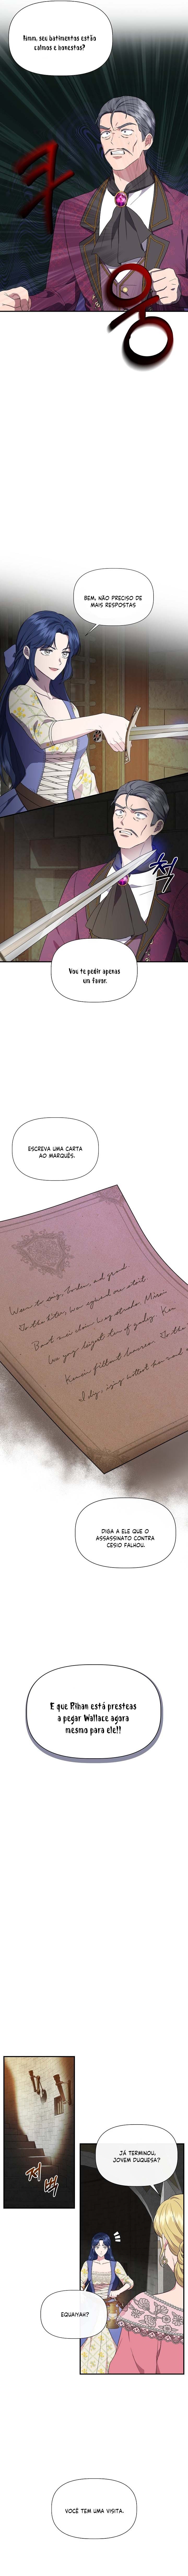 Hmm, seu batimentos estão
calmos e honestos?
쿠
웅
BEM, NÃO PRECISO DE
MAIS RESPOSTAS
척
Vou te pedir apenas
um favor.
ESCREVA UMA CARTA
AO MARQUÊS.
DIGA A ELE QUE O
ASSASSINATO CONTRA
CESIO FALHOU.
E que Rihan está presteas
a pegar Wallace agora
mesmo para ele!!
저
벅
JÁ TERMINOU,
JOVEM DUQUESA?
EQUAIYAK?
VOCÊ TEM UMA VISITA.